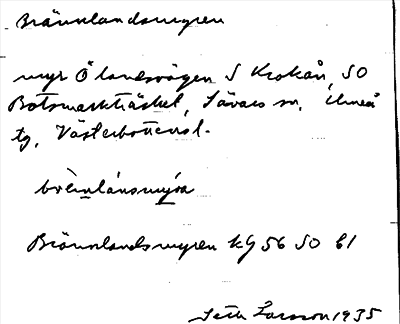 Brännlandsmyren
myr Ö landsvägen S Krokån, SO
Botsmarkträsket, Sävars sn, Umeå
tg, Västerbottensl.
brèinlánsmýra
Brännlandsmyren kg 56 SO 61
Seth Larsson 1935